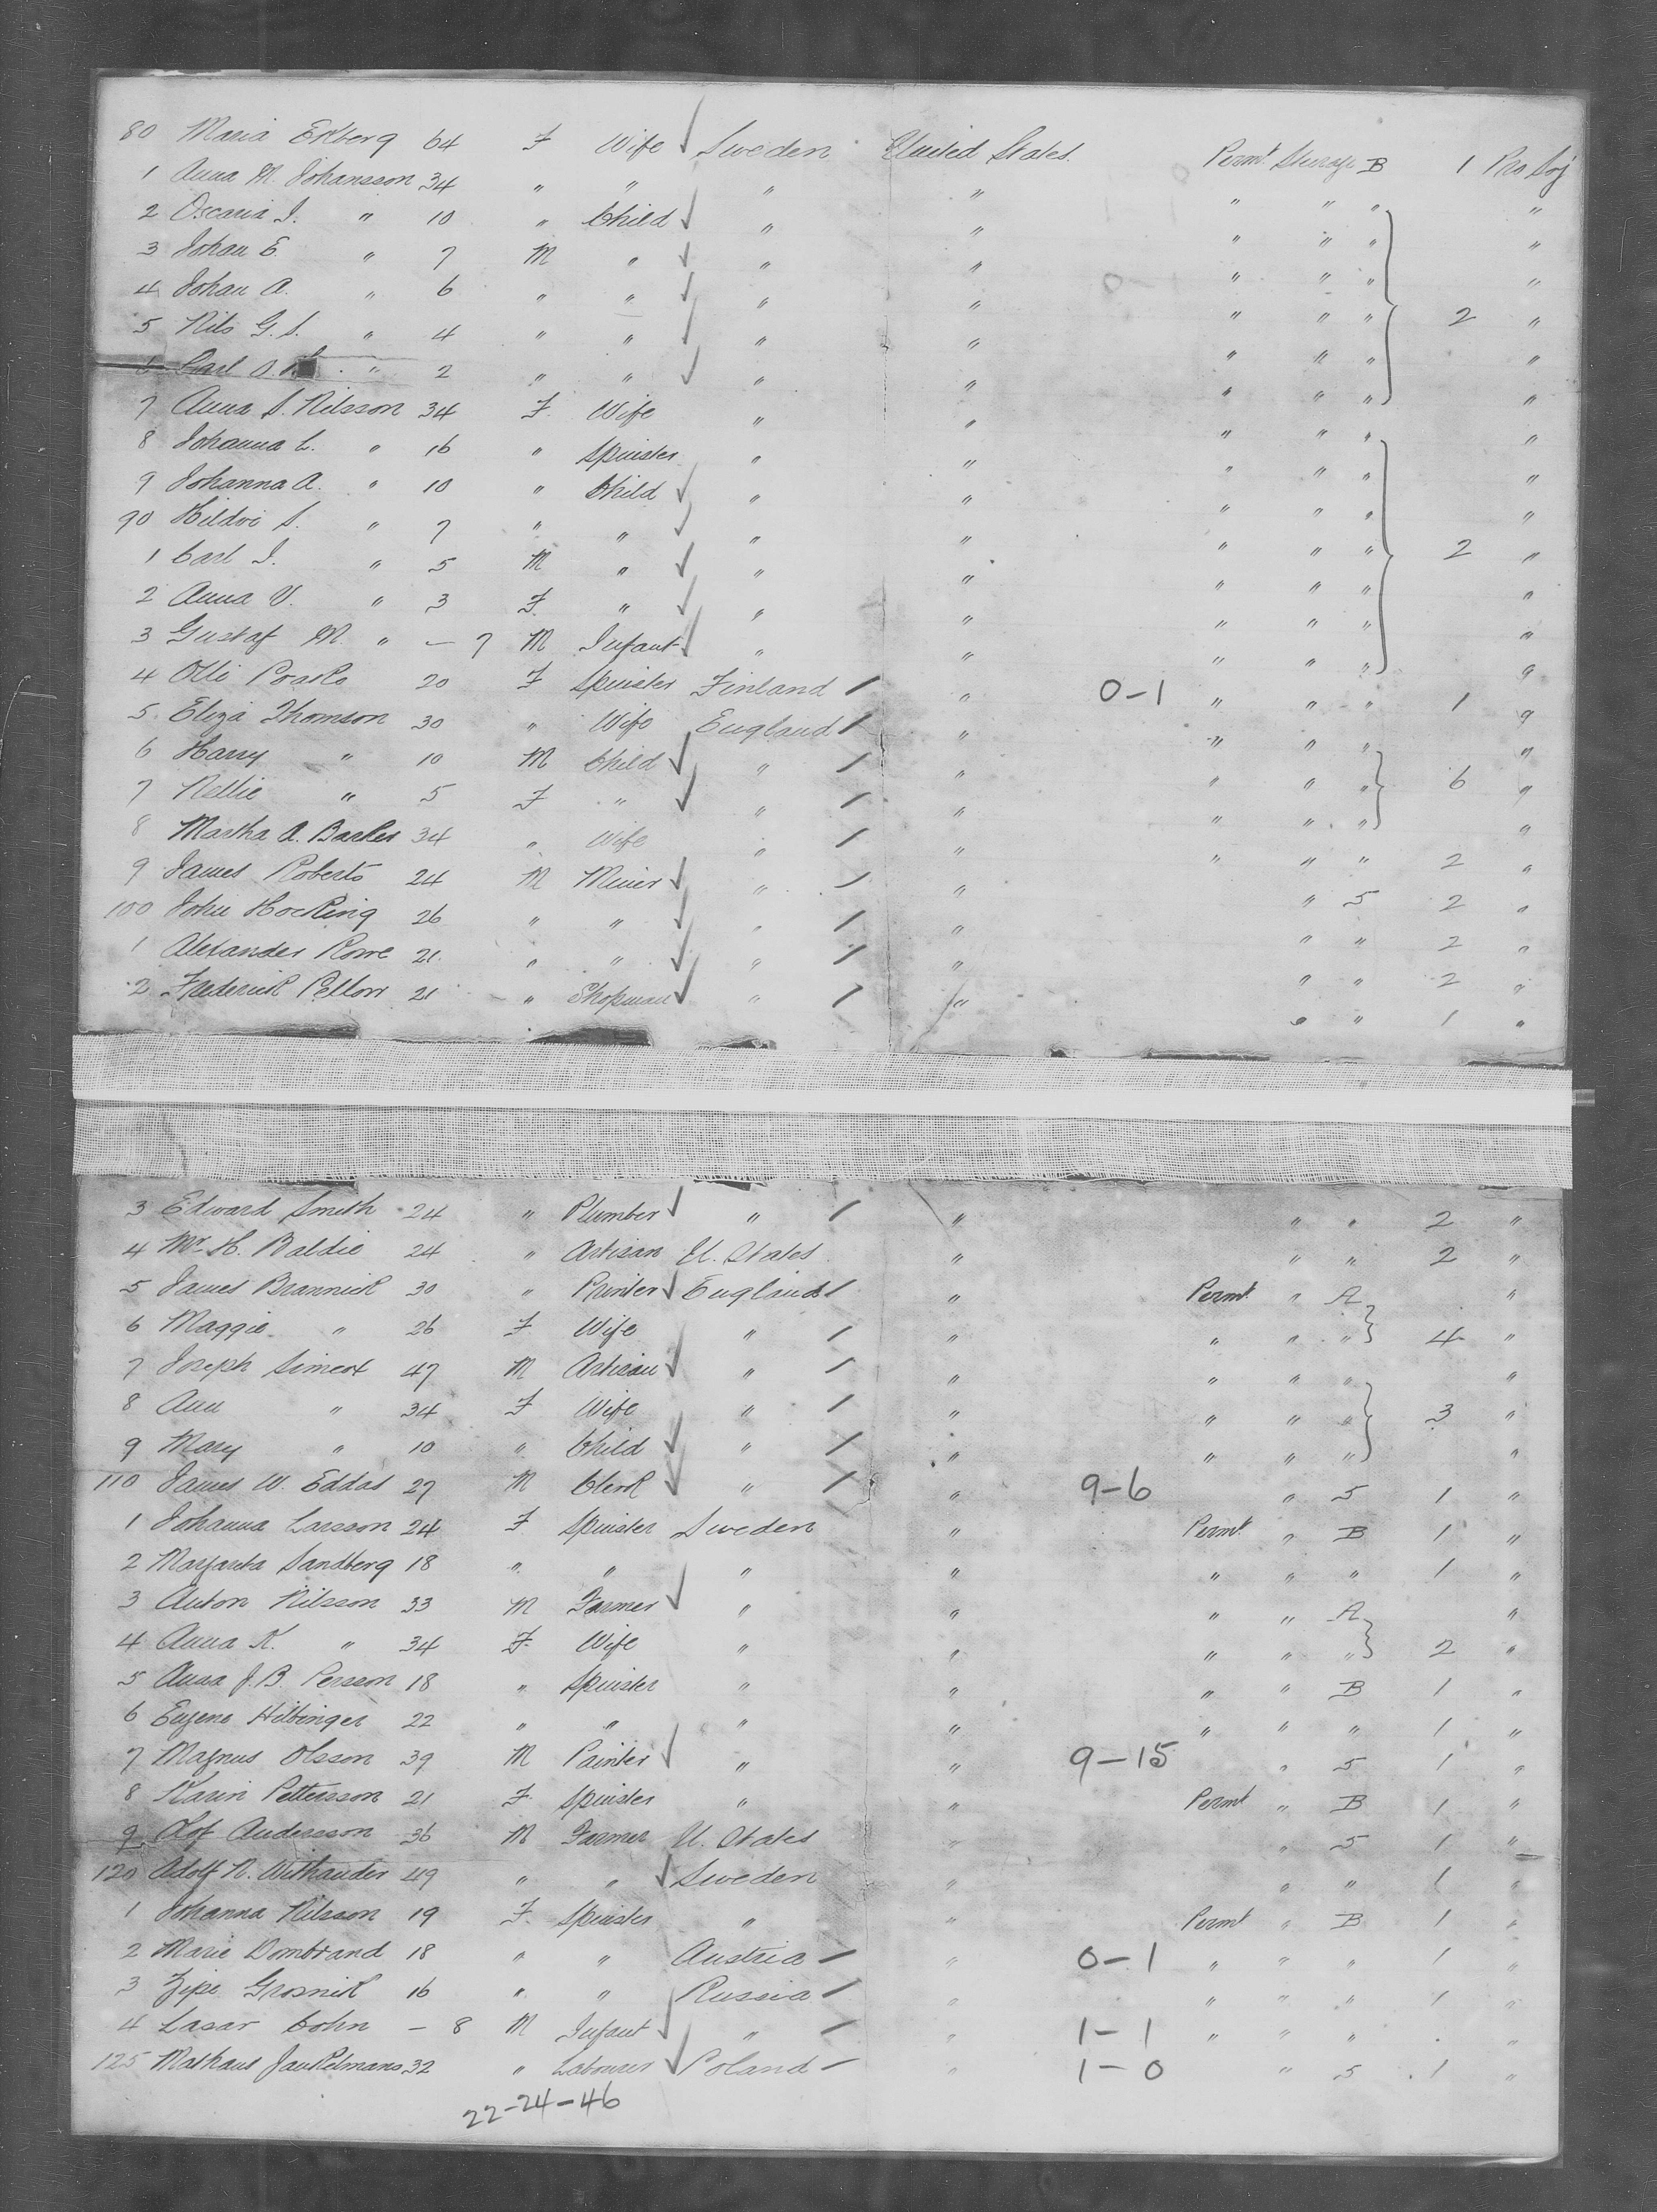 80 Maria Ekberg 64 F Wife Sweden United States. Permt. Steerage B 1 Pro Soj
1 Anna M. Johansson 34 " " " " " " " "
2 Oscaria J. " 10 " Child " " " " " "
3 Johan E. " 7 M " " " " " " "
4 Johan A. " 6 " " " " " " " 2 "
5 Nils G. S. " 4 " " " " " " " "
6 Carl O. " 2 " " " " " " " "
7 Anna S. Nilsson 34 F. Wife " " " " " "
8 Johanna L. " 16 " Spinster " " " " " "
9 Johanna A. " 10 " Child " " " " " "
90 Hildvi S. " 7 " " " " " " " 2 "
1 Carl J. " 5 M " " " " " " "
2 Anna V. " 3 F. " " " " " " "
3 Gustaf M. " – 7 M Infant " " " " " "
4 Olli 20 F Spinster Finland " 0-1 " " " 1 "
5 Eliza Thomson 30 " Wife England " " " " "
6 Harry " 10 M Child " " " " " 6 "
7 Nellie " 5 F " " " " " " "
8 Martha A. Barker 34 " Wife " " " " " 2 "
9 James Roberts 24 M Miner " " " 5 2 "
100 John Hocking 26 " " " " " " 2 "
1 Alexander Rowe 21 " " " " " " 2 "
2 Frederick Pellow 21 " Shopman " " " " 1 "
3 Edward Smith 24 " Plumber " " " " 2 "
4 Mr. H. Baldie 24 " Artisan U. States " " " 2 "
5 James Brannick 30 " Printer England " Permt. " A "
6 Maggie " 26 F Wife " " " " " 4 "
7 Joseph Simcox 47 M Artisan " " " " " "
8 Ann " 34 F Wife " " " " " 3 "
9 Mary " 10 " Child " " " " " "
110 James W. Eddas 27 M Clerk " " 9-6 " 5 1 "
1 Johanna Larsson 24 F Spinster Sweden " Permt. " B 1 "
2 Margareta Sandberg 18 " " " " " " " 1 "
3 Anton Nilsson 33 M Farmer " " " " A "
4 Anna K. " 34 F. Wife " " " " " 2 "
5 Anna J. B. Persson 18 " Spinster " " " " B 1 "
6 Eugene Hilbinger 22 " " " " " " " 1 "
7 Magnus Olsson 39 M Painter " " 9-15 " 5 1 "
8 Karin Pettersson 21 F. Spinster " " Permt " B 1 "
9 Olof Andersson 36 M Farmer U. States " " 5 1 "
120 Adolf N. Withander 49 " " Sweden " " " 1 "
1 Johanna Nilsson 19 F. Spinster " " Permt " B 1 "
2 Marie Dombrand 18 " " Austria " 0-1 " " " 1 "
3 Zipe Grosnik 16 " " Russia " " " " 1 "
4 Lasar Cohn – 8 M Infant " " 1-1 " " " . "
125 Mathaus Jankelmans 32 " Labourer Poland " 1-0 " 5 1 "
22-24-46